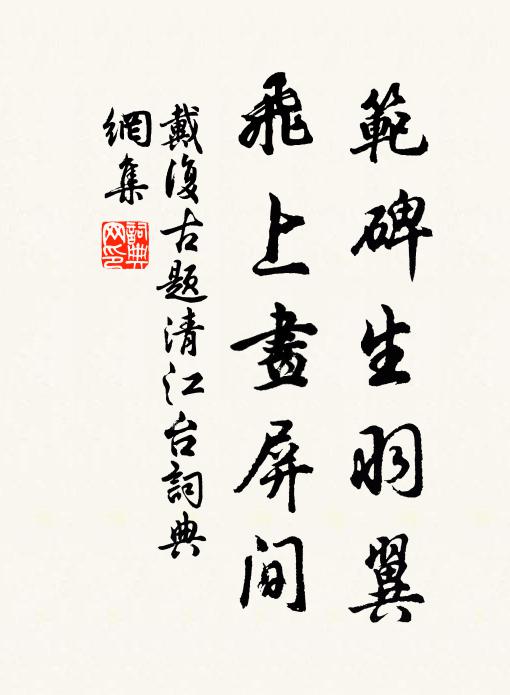 範碑生羽翼
飛上畫屏間
戴復古題清江台詞典
網集
詞典
网印